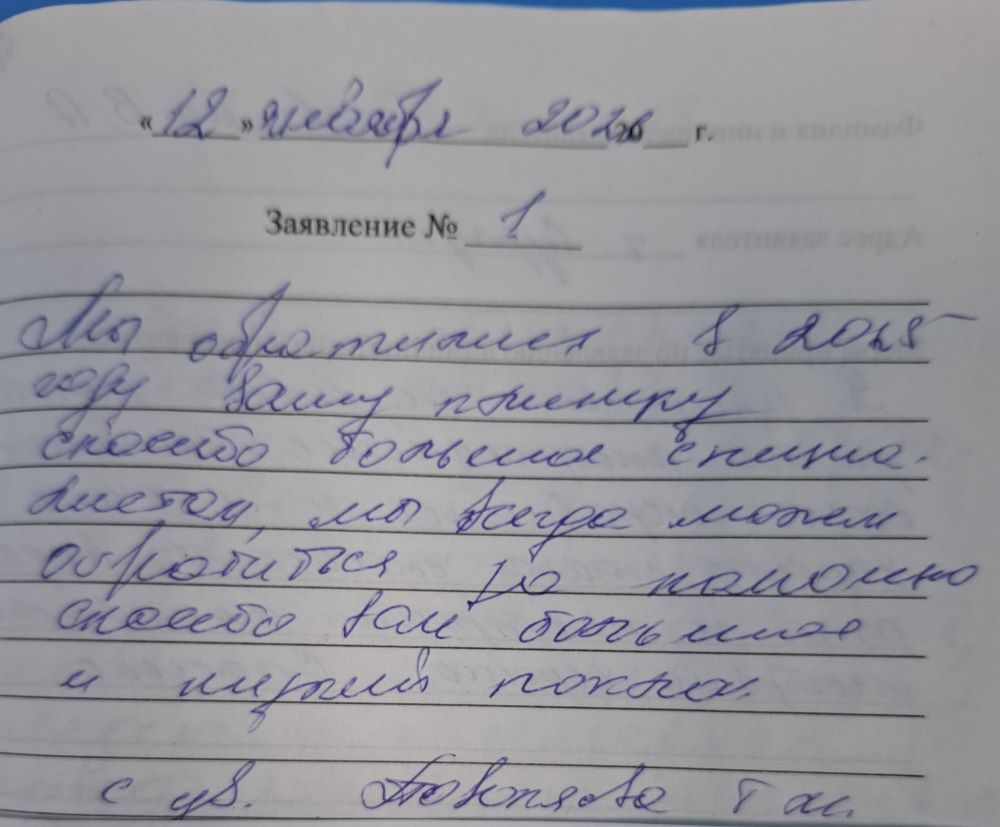 «12» января 2026 20 г.
Заявление № 1
Мы обратились в 2025
году вашу клинику
спасибо большое специа-
листам, мы всегда можем
обратиться за помощью
спасибо вам большое
и низкий поклон.
с ув.